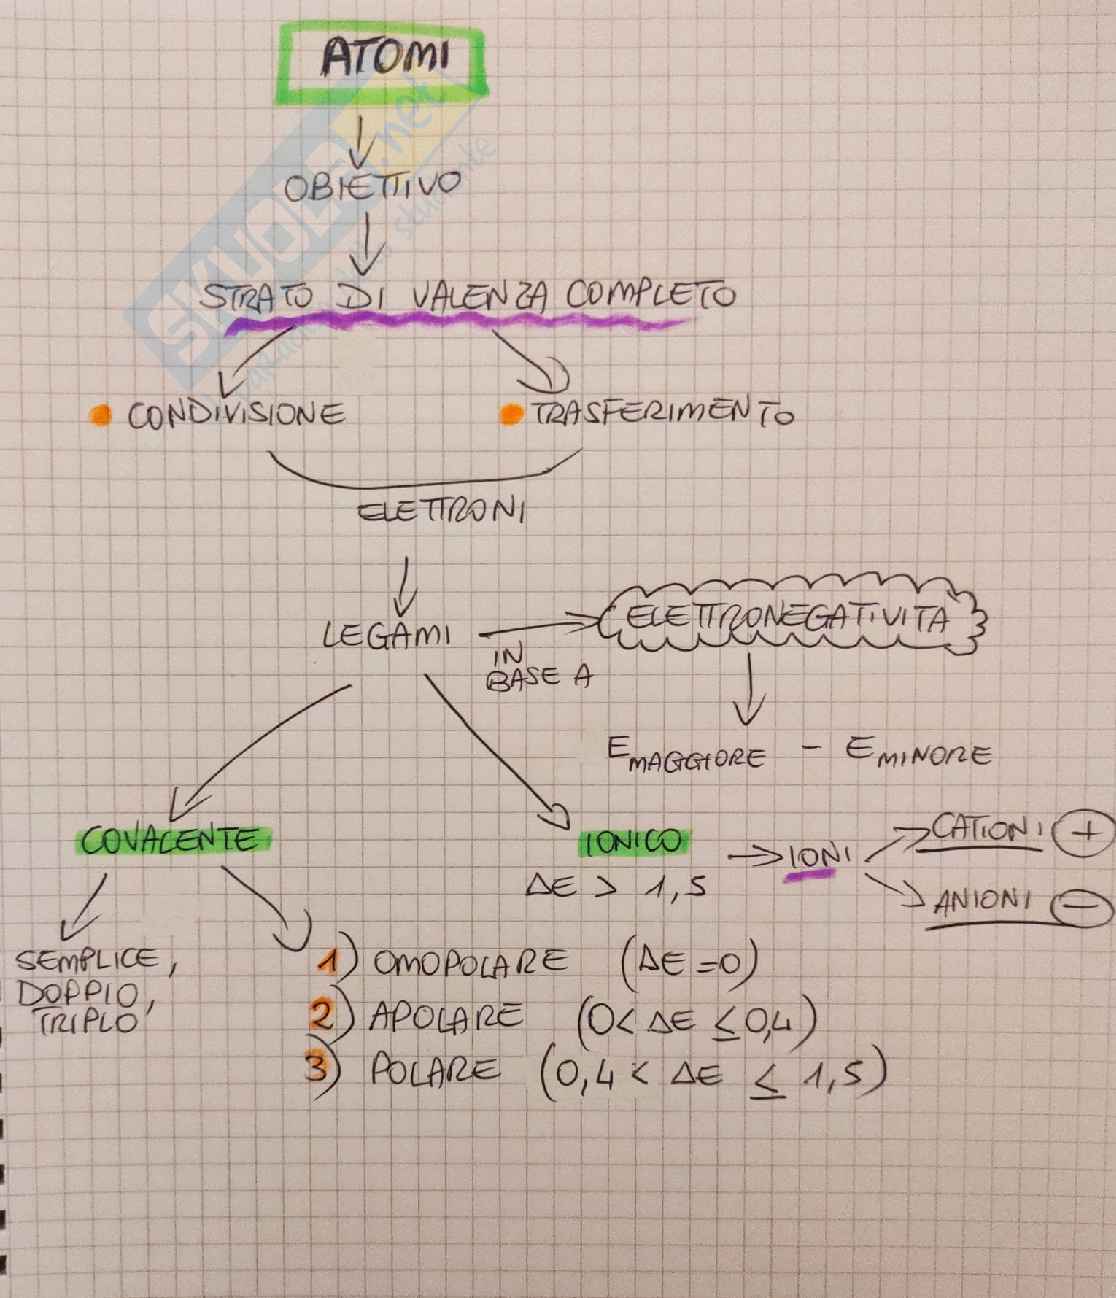 ATOMI
OBIETTIVO
STRATO DI VALENZA COMPLETO
CONDIVISIONE
TRASFERIMENTO
ELETTRONI
LEGAMI
IN
BASE A
ELETTRONEGATIVITA
E MAGGIORE - E MINORE
COVALENTE
IONICO
ΔE > 1,5
IONI
CATIONI +
ANIONI -
SEMPLICE,
DOPPIO,
TRIPLO
1) OMOPOLARE (ΔE =0)
2) APOLARE (0< ΔE ≤0,4)
3) POLARE (0,4 < ΔE ≤ 1,5)
SKUOLA.net